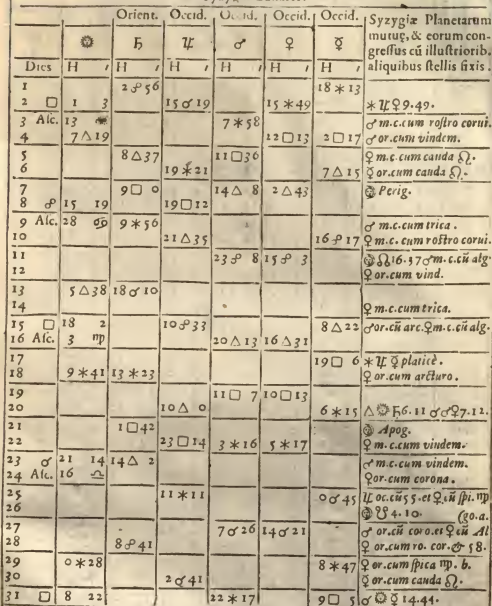 Orient. Occid. Occid. Occid. Occid. Syzygiæ Planetarum
mutuę, & eorum con-
☼ ♄ ♃ ♂ ♀ ☿ gressus cũ illustriorib.
Dies H ′ H ′ H ′ H ′ H ′ H ′ aliquibus stellis fixis.
1 2☍56 18✶13
2 □ 1 3 15☌19 15✶49 ✶♃♀9.49.
3 Asc. 13 7✶58 ♂m.c.cum rostro corui.
4 7△19 12□13 2□17 ♂or.cum vindem.
5 8△37 11□36 ♀m.c.cum cauda ☊.
6 19✶21 7△15 ☿or.cum cauda ☊.
7 9□0 14△8 2△43 Perig.
8 ☍ 15 19 19□12
9 Asc. 28 ♋ 9✶56 ♂m.c.cum trica.
10 21△35 16☍17 ♀m.c.cum rostro corui.
11 23☍8 15☍3 ☊16.57♂m.c.cũ alg.
12 ♀or.cum vind.
13 5△38 18☌10
14 ♀m.c.cum trica.
15 □ 18 2 10☍33 8△22 ♂or.cũ arc.♀m.c.cũ alg.
16 Asc. 3 ♍ 20△13 16△31
17 19□6 ✶♃☿platicè.
18 9✶41 13✶23 ♀or.cum arcturo.
19 11□7 10□13
20 10△0 6✶15 △☼♄6.11☌♂♀7.12.
21 1□42 Apog.
22 23□14 3✶16 5✶17 ♀m.c.cum vindem.
23 ☌ 21 14 14△2 ♂m.c.cum vindem.
24 Asc. 16 ♎ ♀or.cum corona.
25 11✶11 0☌45 ♃oc.cũ55.et♀cũ spi.♍
26 ☋4.10. (go.a.
27 7☌26 14☌21 ♂or.cũ coro.et♀cũ Al
28 8☍41 ♀or.cum ro. cor.& 58.
29 0✶28 8✶47 ♀or.cum spica ♍.b.
30 2☌41 ☿or.cum cauda ☊.
31 □ 8 22 22✶17 9□5 ☌☼☿14.44.